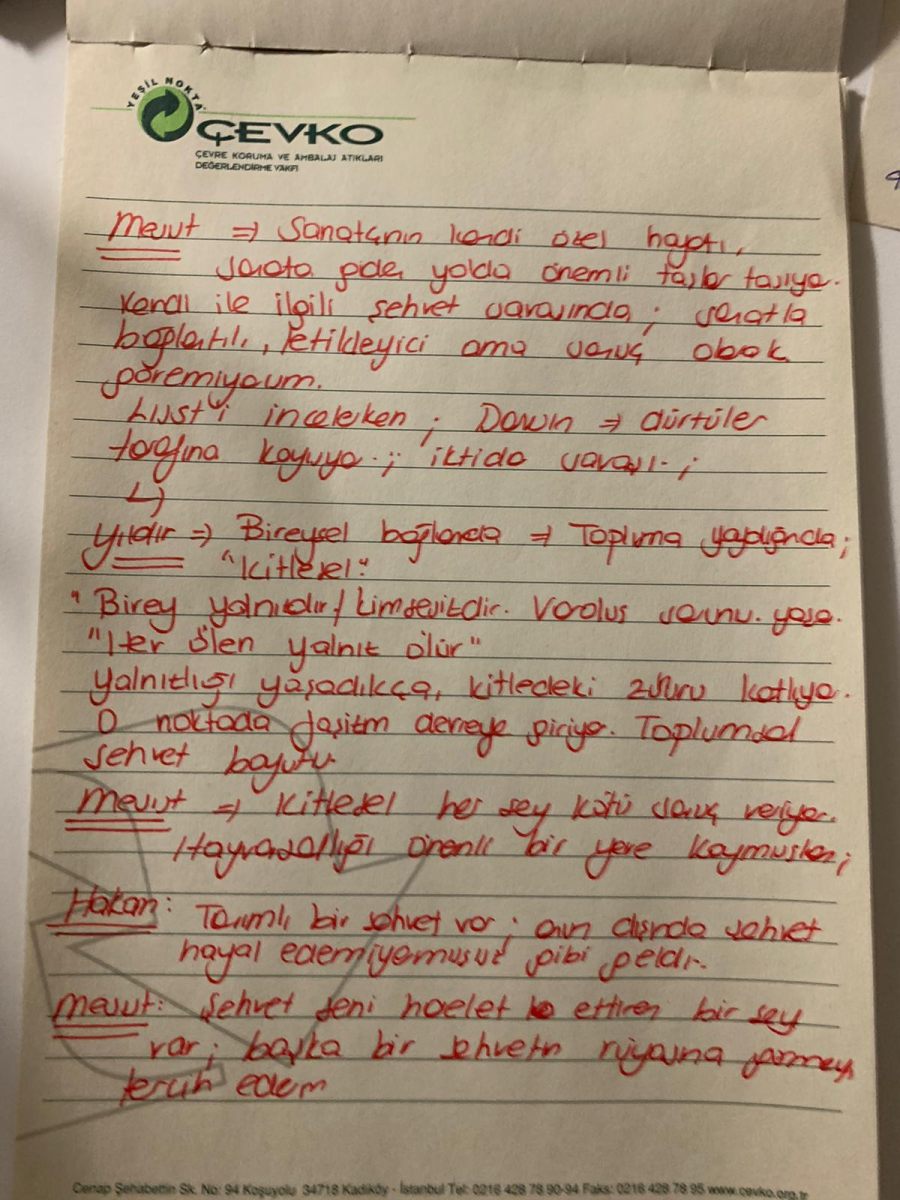 YEŞİL NOKTA
ÇEVKO
ÇEVRE KORUMA VE AMBALAJ ATIKLARI
DEĞERLENDİRME VAKFI
Mevut => Sanatçının kendi özel hayatı,
sanata giden yolda önemli taşlar taşıyor.
Kendi ile ilgili şehvet uyarasında; sanatla
bağlantılı, etkileyici ama sonuç olarak
göremiyorum.
Liszt'i incelerken; => dürtüler
tarafına koyuyor.; iktidar savaşı.;
↳
Yıldır => Bireysel bağlamda => Topluma yaydığında;
"kitlesel"
"Birey yalnızdır/kimsesizdir. Varoluş sorunu. yaşa.
"Her ölen yalnız ölür"
Yalnızlığı yaşadıkça, kitledeki zulüm katlıyor.
O noktada faşizm devreye giriyor. Toplumsal
şehvet boyutu
Mevut => Kitlesel her şey kötü sonuç veriyor.
Hayvansallığı önemli bir yere koymuşlar;
Hakan: Tanımlı bir şehvet var; onun dışında şehvet
hayal edemiyormuşuz gibi geldi.
Mevut: Şehvet seni hareket ettiren bir şey
var; başka bir şehvetin rüyasına yatmayı
tercih ederim
Cenap Şehabettin Sk. No: 94 Koşuyolu 34718 Kadıköy - İstanbul Tel: 0216 428 78 90-94 Faks: 0216 428 78 95 www.cevko.org.tr